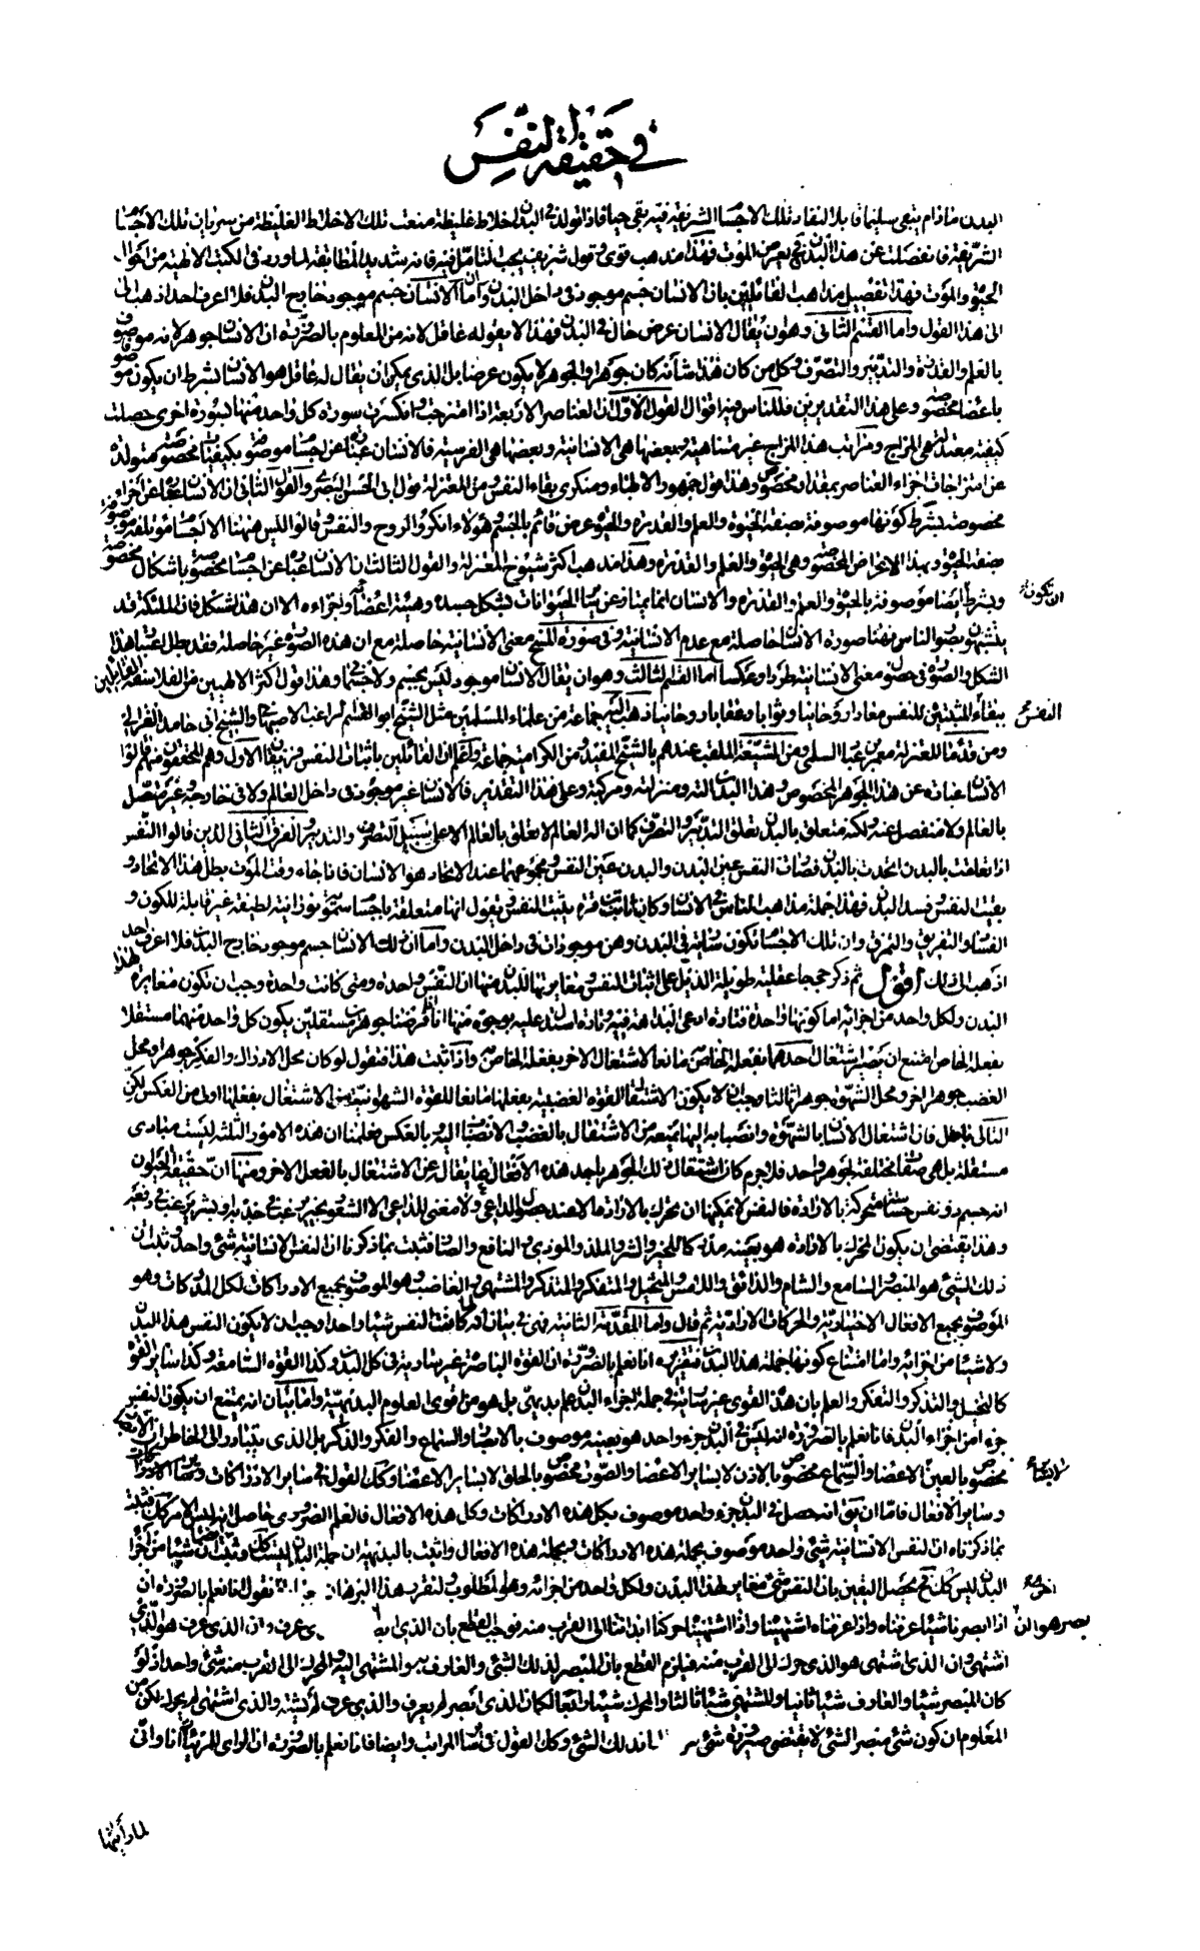 في حقيقة النفس
البدن فما دام يبقى سليما قابلا لنفاذ تلك الاجسام الشريفة فيه بقي حيا فاذا تولد في البدن اخلاط غليظة منعت تلك الاخلاط الغليظة من سريان تلك الاجسام
الشريفة فانفصلت عن هذا البدن فح يعرض الموت فهذا مذهب قوى وقول شريف يجب التامل فيه فانه شديد المطابقة لما ورد في الكتب الالهية من احوال
الحيوة والموت فهذا تفصيل مذاهب القائلين بان الانسان جسم موجود في داخل البدن واما ان الانسان جسم موجود خارج البدن فلا اعرف احدا ذهب الى
الى هذا القول واما القسم الثانى وهو ان يقال الانسان عرض حال في البدن فهذا لا يقوله عاقل لانه من المعلوم بالضرورة ان الانسان جوهر لانه موصوف
بالعلم والقدرة والتدبير والتصرف وكل من كان هذا شأنه كان جوهرا والجوهر لا يكون عرضا بل الذى يمكن ان يقال له عاقل هو الانسان بشرط ان يكون موصوفا
باعضا مخصوصة وعلى هذا التقدير فللناس فيه اقوال القول الاول ان العناصر الاربعة اذا امتزجت وانكسرت سورة كل واحد منها بسورة اخرى حصلت
كيفية معتدلة هي المزاج ومراتب هذا المزاج غير متناهية فبعضها هي الانسانية وبعضها هي الفرسية فالانسان عبارة عن اجسام موصوفة بكيفيات مخصوصة متولدة
عن امتزاجات اجزاء العناصر بمقدار مخصوص وهذا قول جمهور الاطباء ومنكرى بقاء النفس ومن المعتزلة قول ابى الحسين البصرى والقول الثانى ان الانسان عبارة عن اجزاء
مخصوصة بشرط كونها موصوفة بصفة الحيوة والعلم والقدرة والحيوة عرض قائم بالجسم وهؤلاء انكروا الروح والنفس وقالوا ليس ههنا الا اجسام مؤتلفة موصوفة
بصفة الحيوة وبهذا الاعراض المخصوصة وهى الحيوة والعلم والقدرة وهذا مذهب اكثر شيوخ المعتزلة والقول الثالث ان الانسان عبارة عن اجسام مخصوصة باشكال مخصوصة
وبشرط ايضا موصوفة بالحيوة والعلم والقدرة والانسان انما يمتاز عن ساير الحيوانات بشكل جسده وهيئة اعضائه واجزاءه الا ان هذا مشكل فان الملئكة قد
ان تكون
يتشبهون بصور الناس فههنا صورة الانسان حاصلة مع عدم الانسانية وفي صورة المسخ معنى الانسانية حاصلة مع ان هذه الصورة غير حاصلة فقد بطل اعتبار هذا
الشكل والصورة في حصول معنى الانسانية طردا وعكسا اما القسم الثالث وهو ان يقال الانسان موجود ليس بجسم ولا جسمانى وهذا قول اكثر الالهيين من الفلاسفة القائلين
ببقاء المثبتين للنفس معادا روحانيا وثوابا وعقابا روحانيا ذهب اليه جماعة من علماء المسلمين مثل الشيخ ابو القاسم الراغب الاصفهانى والشيخ ابى حامد الغزالى
النفس
ومن قدماء المعتزلة معمر بن عباد السلمى ومن الشيعة الملقب عندهم بالشيخ المفيد ومن الكرامية جماعة واعلم ان القائلين باثبات النفس فريقان الاول وهم المحققون منهم قالوا
الانسان عبارة عن هذا الجوهر المخصوص وهذا البدن آلته ومنزلته ومركبه وعلى هذا التقدير فالانسان غير موجود في داخل العالم ولا في خارجه وغير متصل
بالعالم ولا منفصل عنه ولكنه متعلق بالبدن تعلق التدبير والتصرف كما ان اله العالم لا تعلق له بالعالم الا على سبيل التصرف والتدبير والفريق الثانى الذين قالوا النفس
اذا تعلقت بالبدن اتحدت بالبدن فصارت النفس عين البدن والبدن عين النفس ومجموعهما عند الاتحاد هو الانسان فاذا جاء وقت الموت بطل هذا الاتحاد و
بقيت النفس وفسد البدن فهذا جملة مذاهب الناس في الانسان وكان ثابت بن قره يثبت النفس ويقول انها متعلقة باجسام سماوية نورانية لطيفة غير قابلة للكون و
الفساد والتفريق والتمزق وان تلك الاجسام تكون سارية في البدن وهى موجودات في داخل البدن واما ان ذلك الانسان جسم موجود خارج البدن فلا اعرف احدا
ذهب الى ذلك اقول ثم ذكر حججا عقلية طويلة الذيل على اثبات النفس ومغايرتها للبدن منها ان النفس واحدة ومتى كانت واحدة وجب ان تكون مغايرة لهذا
البدن ولكل واحد من اجزائه اما كونها واحدة فتارة ادعى البداهة فيه وتارة استدل عليه بوجوه منها انا اذا فرضنا جوهرين مستقلين يكون كل واحد منهما مستقلا
بفعله الخاص امتنع ان يصير اشتغال احدهما بفعله الخاص مانعا لاشتغال الاخر بفعله الخاص واذا ثبت هذا فنقول لو كان محل الادراك والفكر جوهرا ومحل
الغضب جوهرا اخر ومحل الشهوة جوهرا ثالثا وجب ان لا يكون الاشتغال القوة الغضبية بفعلها مانعا للقوة الشهوانية من الاشتغال بفعلها ولا بالعكس لكن
التالى باطل فان اشتغال الانسان بالشهوة وانصبابه اليها يمنعه من الاشتغال بالغضب والانصباب اليه وبالعكس فعلمنا ان هذه الامور الثلثة ليست مبادى
مستقلة بل هى صفات مختلفة لجوهر واحد فلا جرم كان اشتغال ذلك الجوهر باحد هذه الافعال عايقا له عن الاشتغال بالفعل الاخر ومنها ان حقيقة الحيوان
انه جسم ذو نفس حساسة متحركة بالارادة فالنفس لا يمكنها ان تتحرك بالارادة الا عند حصول الداعى ولا معنى للداعى الا الشعور بخير يرغب في جذبه او بشر يرغب في دفعه
وهذا يقتضى ان يكون المتحرك بالارادة هو بعينه مدركا للخير والشر والملذ والموذى والنافع والضار فثبت بما ذكرنا ان النفس الانسانية شئ واحد وثبت ان
ذلك الشئ هو المبصر والسامع والشام والذائق واللامس والمتخيل والمتفكر والمتذكر والمشتهى والغاضب وهو الموصوف بجميع الادراكات لكل المدركات وهو
الموصوف بجميع الافعال الاختيارية والحركات الارادية ثم قال واما المقدمة الثانية فهى في بيان انه لما كانت النفس شيئا واحدا وجب ان لا يكون النفس هذا البدن
ولا شيئا من اجزائه واما امتناع كونها جملة هذا البدن فتقريره انا نعلم بالضرورة ان القوة الباصرة غير سارية في كل البدن وكذا القوة السامعة وكذا ساير القوى
كالتخيل والتذكر والتفكر والعلم بان هذه القوى غير سارية في جملة اجزاء البدن علم بديهى بل هو من اقوى العلوم البديهية واما بيان انه يمتنع ان يكون النفس
جزء من اجزاء البدن فانا نعلم بالضرورة انه ليس في البدن جزء واحد هو بعينه موصوف بالابصار والسماع والفكر والذكر بل الذى يتبادر الى الخاطر ان الابصار
مخصوص بالعين لا بساير الاعضاء والسماع مخصوص بالاذن لا بساير الاعضاء والصوت مخصوص بالحلق لا بساير الاعضاء وكذلك القول في ساير الادراكات
وساير الافعال فاما ان يقال انه حصل في البدن جزء واحد موصوف بكل هذه الادراكات وكل هذه الافعال فالعلم الضرورى حاصل انه ليس الامر كذلك فثبت
بما ذكرناه ان النفس الانسانية شئ واحد موصوف بجملة هذه الادراكات وبجملة هذه الافعال وثبت بالبديهة ان جملة البدن ليست كذلك وثبت ايضا ان شيئا من اجزاء
البدن ليس كذلك فح يحصل اليقين بان النفس شئ مغاير لهذا البدن ولكل واحد من اجزائه وهو المطلوب ولنقرب هذا البرهان نقول انا نعلم بالضرورة انا
اذا ابصرنا شيئا عرفناه واذا عرفناه اشتهيناه واذا اشتهيناه حركنا ابداننا الى القرب منه فوجب القطع بان الذى عرف وان الذى عرف هو الذى
بصر هو الذى
اشتهى وان الذى اشتهى هو الذى حرك الى القرب منه فيلزم القطع بان المبصر لذلك الشئ والعارف به والمشتهى اليه والمحرك الى القرب منه شئ واحد اذ لو
كان المبصر شيئا والعارف شيئا ثانيا والمشتهى شيئا ثالثا والمحرك شيئا رابعا لكان الذى ابصر لم يعرف والذى عرف لم يشته والذى اشتهى لم يحرك لكن من
المعلوم ان كون شئ مبصرا لشئ لا يقتضى صيرورة شئ لذلك الشئ وكذلك القول في ساير المراتب وايضا فانا نعلم بالضرورة ان الرائى للمرئيات انا وانى
لما رأيتها